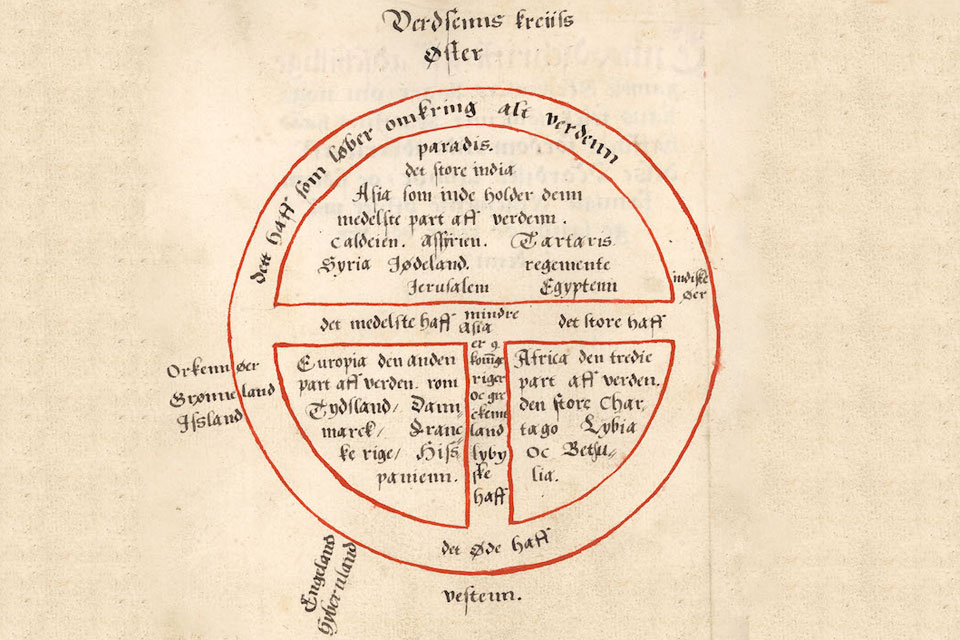 Verdsenns kreiiss
Øster
dett haff som løber omkring alt verdenn
paradis.
det store india
Asia som inde holder denn
medelste part aff verdenn.
caldeien. assirien. Tartaris
Syria Jødeland. regemente
Jerusalem Egyptenn
indiske
øer
det medelste haff
mindre
asia
det store haff
er 9
konnge
riger
oc gre
ckenn
land
lyby
ske
haff
Orkenn øer
Grønneland
Jssland
Europia den anden
part aff verden. rom
Tydsland/ Dann
marck/ Franc
ke rige/ Hiss
panienn.
Africa den tredie
part aff verden.
den store Char,
tago Lybia
oc Bethu-
lia.
det øde haff
Engeland
Hybernland
vestenn.